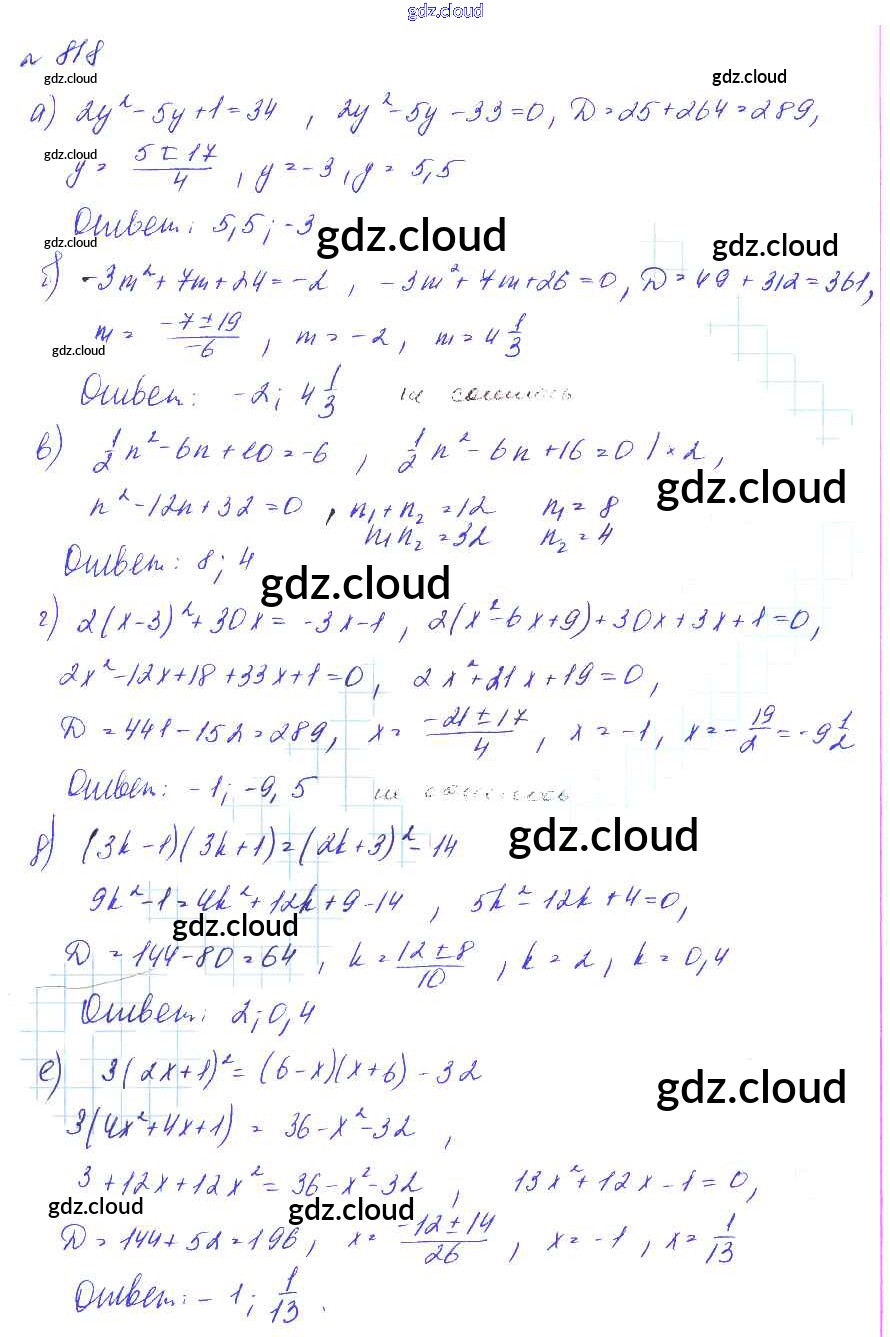 gdz.cloud
№ 818
gdz.cloud gdz.cloud
а) 2y² - 5y + 1 = 34 , 2y² - 5y - 33 = 0, D = 25 + 264 = 289,
gdz.cloud
y = (5 ± 17)/4 , y = -3, y = 5,5
Ответ: 5,5; -3
gdz.cloud gdz.cloud gdz.cloud
б) -3m² + 7m + 24 = -2 , -3m² + 7m + 26 = 0, D = 49 + 312 = 361,
m = (-7 ± 19)/-6 , m = -2, m = 4 1/3
gdz.cloud
Ответ: -2; 4 1/3 не сошлось
в) 1/2 n² - 6n + 10 = -6 , 1/2 n² - 6n + 16 = 0 | × 2,
gdz.cloud
n² - 12n + 32 = 0 , n₁ + n₂ = 12 n₁ = 8
n₁n₂ = 32 n₂ = 4
Ответ: 8; 4
gdz.cloud
г) 2(x-3)² + 30x = -3x-1 , 2(x²-6x+9)+30x+3x+1=0,
2x²-12x+18+33x+1=0, 2x²+21x+19=0,
D = 441-152=289, x = (-21 ± 17)/4 , x = -1, x = -19/2 = -9 1/2
Ответ: -1; -9,5 не сошлось
gdz.cloud
д) (3k-1)(3k+1)=(2k+3)²-14
9k²-1=4k²+12k+9-14 , 5k²-12k+4=0,
gdz.cloud
D = 144-80=64 , k = (12 ± 8)/10 , k = 2, k = 0,4
Ответ: 2; 0,4
е) 3(2x+1)² = (6-x)(x+6) - 32
gdz.cloud
3(4x²+4x+1) = 36-x²-32 ,
3+12x+12x²=36-x²-32 , 13x²+12x-1=0,
gdz.cloud gdz.cloud
D = 144+52=196, x = (-12 ± 14)/26 , x = -1 , x = 1/13
Ответ: -1; 1/13.